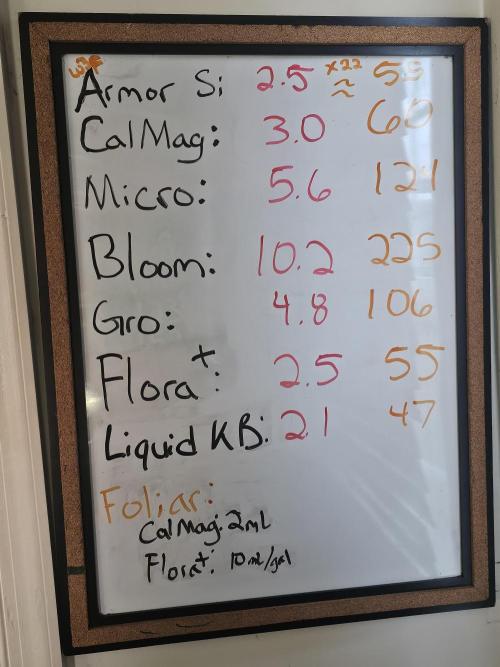 Armor Si 2.5 x22 55
≈
CalMag: 3.0 60
Micro: 5.6 124
Bloom: 10.2 225
Gro: 4.8 106
Flora+: 2.5 55
Liquid KB: 2.1 47
Foliar:
CalMag: 2mL
Flora+: 10mL/gal